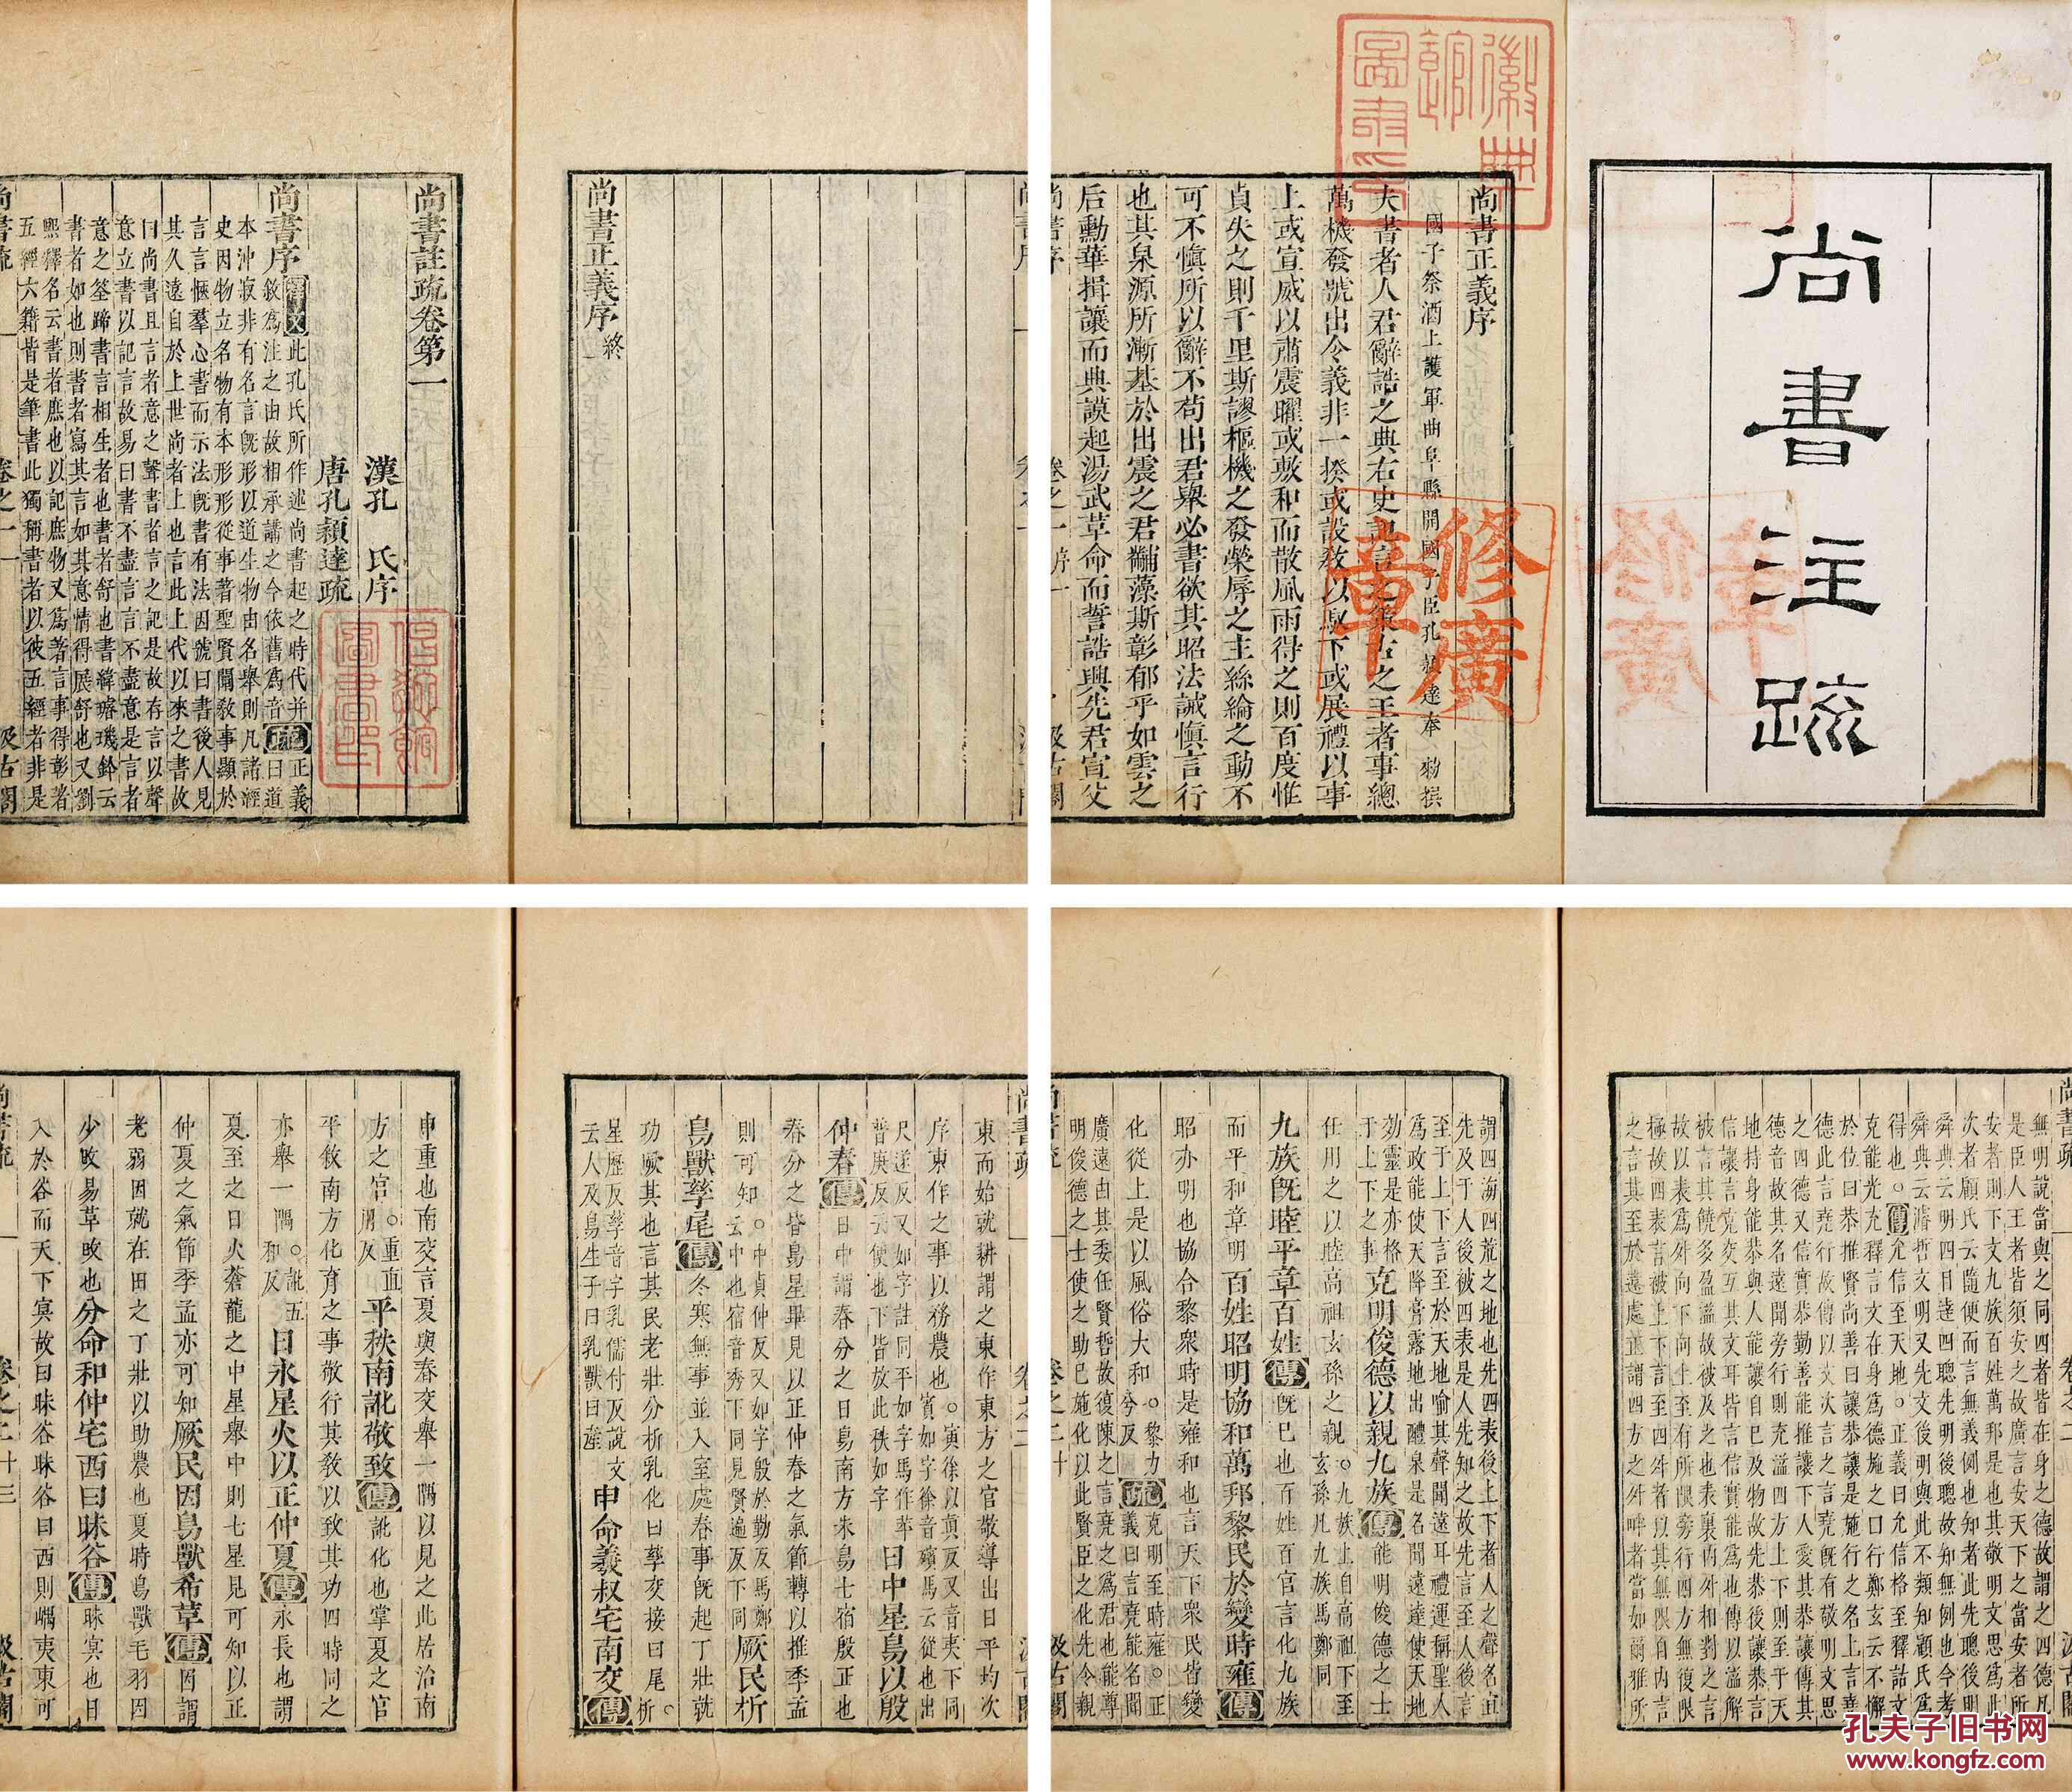 尚書注疏
徽典
館
圖書印
修廣
章
尚書正義序
國子祭酒上護軍曲阜縣開國子臣孔穎達奉 勑撰
夫書者人君辭誥之典右史記言之策古之王者事總
萬機發號出令義非一揆或設教以馭下或展禮以事
上或宣威以肅震曜或敷和而散風雨得之則百度惟
貞失之則千里斯謬樞機之發榮辱之主絲綸之動不
可不慎所以辭不苟出君舉必書欲其昭法誡慎言行
也其泉源所漸基於出震之君黼藻斯彰郁乎如雲之
后勳華揖讓而典謨起湯武革命而誓誥興先君宣父
尚書序 卷之一 序一 汲古閣
尚書正義序終
尚書註疏卷第一
漢孔 氏序
唐孔穎達疏
尚書序釋文此孔氏所作述尚書起之時代并
敘為注之由故相承講之今依舊為音疏正義曰道
本沖寂非有名言既形以道生物由名舉則凡諸經
史因物立名物有本形形從事著聖賢闡教事顯於
言言愜羣心書而示法既書有法因號曰書後人見
其久遠自於上世尚者上也言此上代以來之書故
曰尚書且言者意之聲書者言之記是故存言以聲
意立書以記言故易曰書不盡言言不盡意是言者
意之筌蹄書言相生者也書者舒也書緯璿璣鈐云
書者如也則書者寫其言如其意情得展舒也又劉
熙釋名云書者庶也以記庶物又為著言事得彰著
五經六籍皆是筆書此獨稱書者以彼五經者非是
尚書疏 卷之一 一 汲古閣
無明說當與之同四者皆在身之德故謂之四德凡
是臣人王者皆須安之故廣言安天下之當安者所
安者則下文九族百姓萬邦是也其敬明文思為此
次者顧氏云隨便而言無義例也知者此先聰後明
舜典云明四目達四聰先明後聰故知無例也今考
舜典云濬哲文明又先文後明與此不類知顧氏為
得也。傳允信至天地。正義曰允信格至釋詁文
克能光充釋言文在身為德施之曰行鄭玄云不懈
於位曰恭推賢尚善曰讓恭讓是施行之名上言堯
德此言堯行故傳以文次言之言堯既有敬明文思
之四德又信實恭勤善能推讓下人愛其恭讓傳其
德音故其名遠聞旁行則充溢四方上下則至于天
地持身能恭與人能讓自己及物故先恭後讓恭言
信讓言克交互其文耳皆言信實能為也傳以溢解
被言其饒多盈溢故被及之也表裏內外相對之言
故以表為外向下向上至有所限旁行四方無復限
極故四表言被上下言至四外者以其無限自內言
之言其至於遠處正謂四方之外畔者當如爾雅所
尚書疏 卷之二 汲古閣
謂四海四荒之地也先四表後上下者人之聲名宜
先及于人後被四表是人先知之故先言至人後言
至于上下言至於天地喻其聲聞遠耳禮運稱聖人
為政能使天降膏露地出醴泉是名聞遠達使天地
效靈是亦格
于上下之事克明俊德以親九族傳能明俊德之士
任用之以睦高祖玄孫之親。九族上自高祖下至
玄孫凡九族馬鄭同
九族既睦平章百姓傳既已也百姓百官言化九族
而平和章明百姓昭明協和萬邦黎民於變時雍傳
昭亦明也協合黎眾時是雍和也言天下眾民皆變
化從上是以風俗大和。黎力兮反疏克明至時雍。正
義曰言堯能名聞
廣遠由其委任賢哲故復陳之言堯之為君也能尊
明俊德之士使之助己施化以此賢臣之化先令親
尚書疏 卷之二 十 汲古閣
東而始就耕謂之東作東方之官敬導出日平均次
序東作之事以務農也。寅徐以真反又音夷下同
賓如字徐音殯馬云從也出
尺遂反又如字註同平如字馬作苹
普庚反云使也下皆放此秩如字日中星鳥以殷
仲春傳日中謂春分之日鳥南方朱鳥七宿殷正也
春分之昏鳥星畢見以正仲春之氣節轉以推季孟
則可知。中貞仲反又如字殷於勤反馬鄭
云中也宿音秀下同見賢遍反下同厥民析
鳥獸孳尾傳冬寒無事並入室處春事既起丁壯就
功厥其也言其民老壯分析乳化曰孳交接曰尾。析
星歷反孳音字乳儒付反說文
云人及鳥生子曰乳獸曰產申命羲叔宅南交傳
申重也南交言夏與春交舉一隅以見之此居治南
方之官。重直用反平秩南訛敬致傳訛化也掌夏之官
平敘南方化育之事敬行其教以致其功四時同之
亦舉一隅。訛五和反日永星火以正仲夏傳永長也謂
夏至之日火蒼龍之中星舉中則七星見可知以正
仲夏之氣節季孟亦可知厥民因鳥獸希革傳因謂
老弱因就在田之丁壯以助農也夏時鳥獸毛羽因
少改易革改也分命和仲宅西曰昧谷傳昧冥也日
入於谷而天下冥故曰昧谷昧谷曰西則嵎夷東可
尚書疏 卷之二 十三 汲古閣
孔夫子旧书网
www.kongfz.com